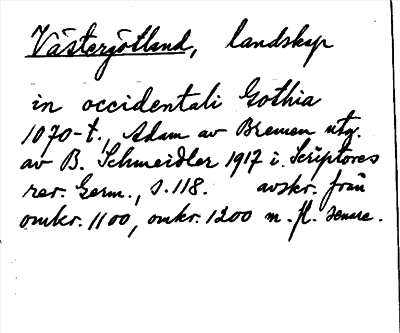 Västergötland, landskap
in occidentali Gothia
1070-t., Adam av Bremen utg.
av B. Schmeidler 1917 i Scriptores
rer. Germ., s. 118. avskr. från
omkr. 1100, omkr. 1200 m. fl. senare.